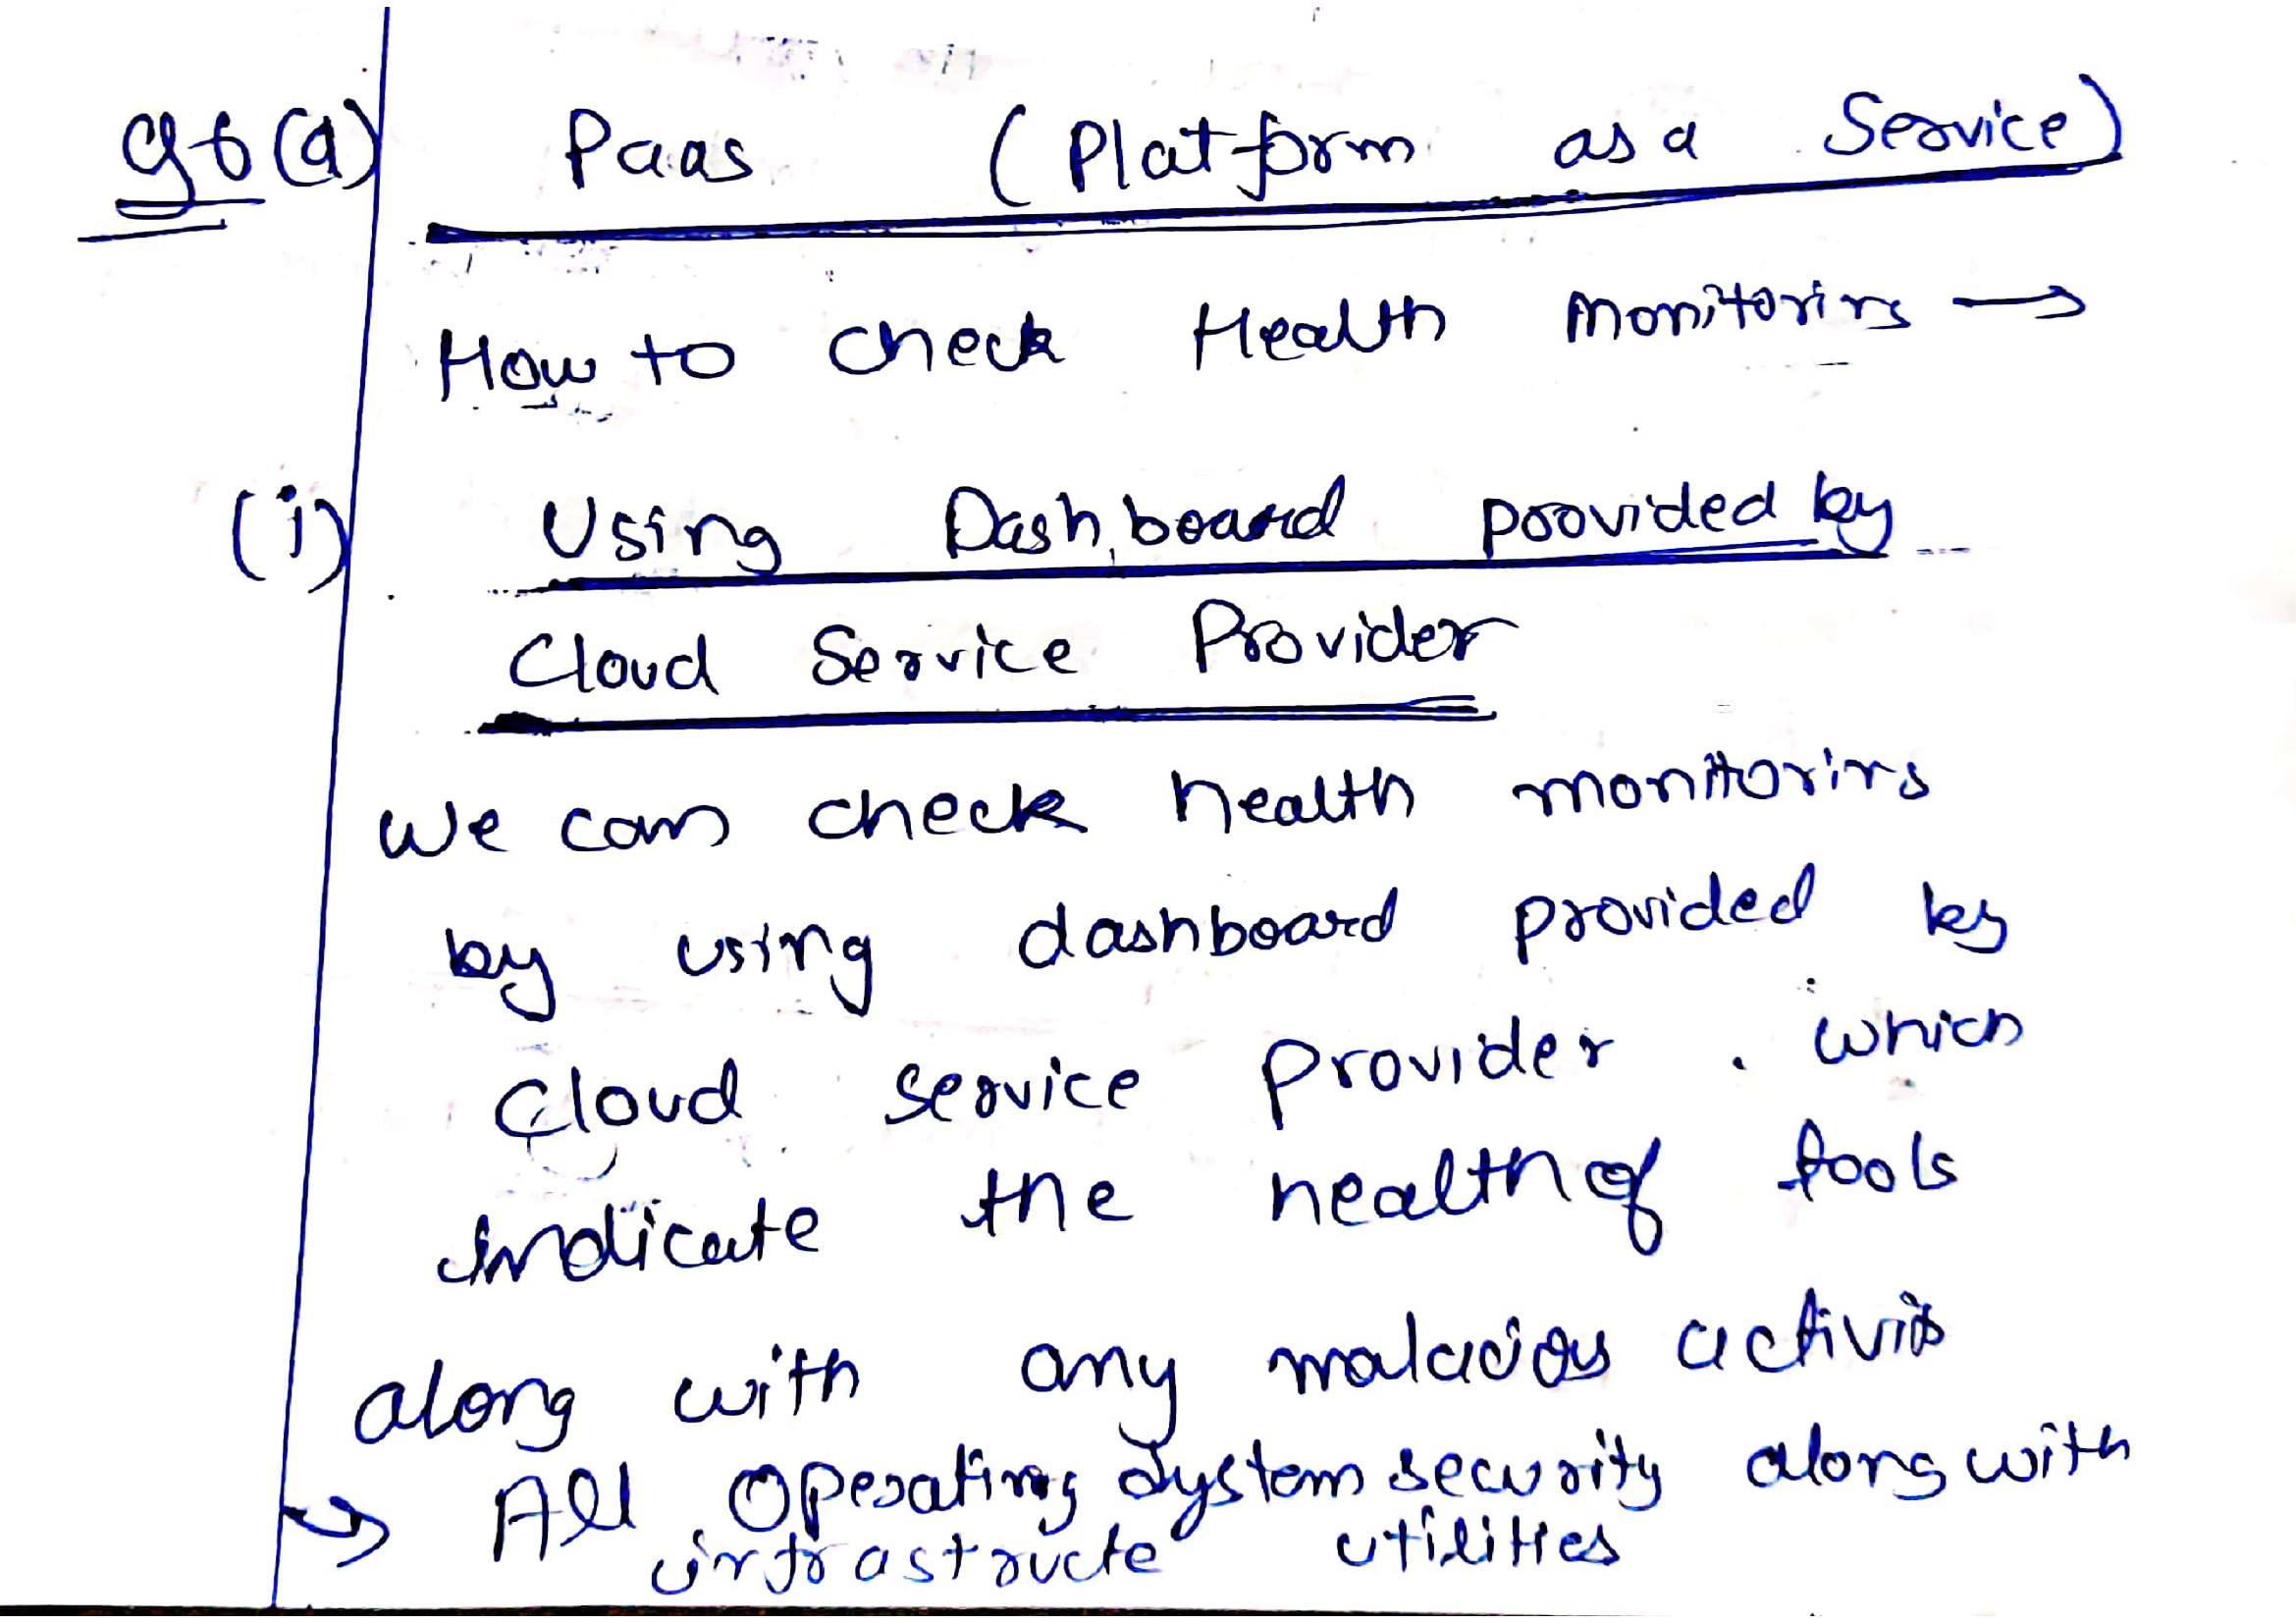 96(a) Paas (Platform as a Service)
How to check Health Monitoring →
(i) Using Dashboard provided by
Cloud Service Provider
We can check health monitoring
by using dashboard provided by
Cloud service provider . which
indicate the health of tools
along with any malacious activit
→ All Operating System security along with
infrastructe utilities